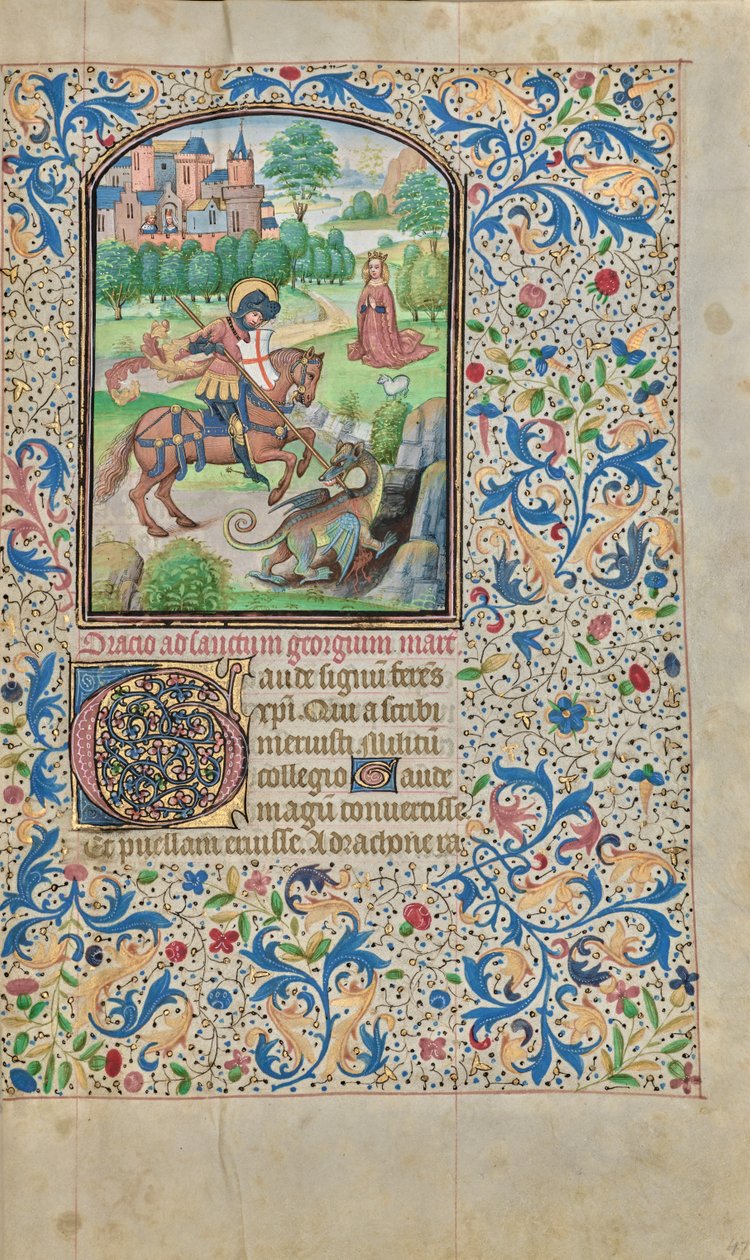 Oracio ad sanctum georgium mart.
Gaude signũ ferẽs
xpĩ. Qui a scribi
meruisti. Militũ
collegio Gaude
magũ convertisse
Et puellam eruisse. A drachone ra
47